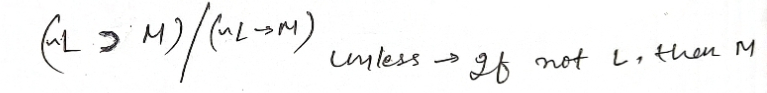 (~L ⊃ M)/(~L → M) unless → If not L, then M